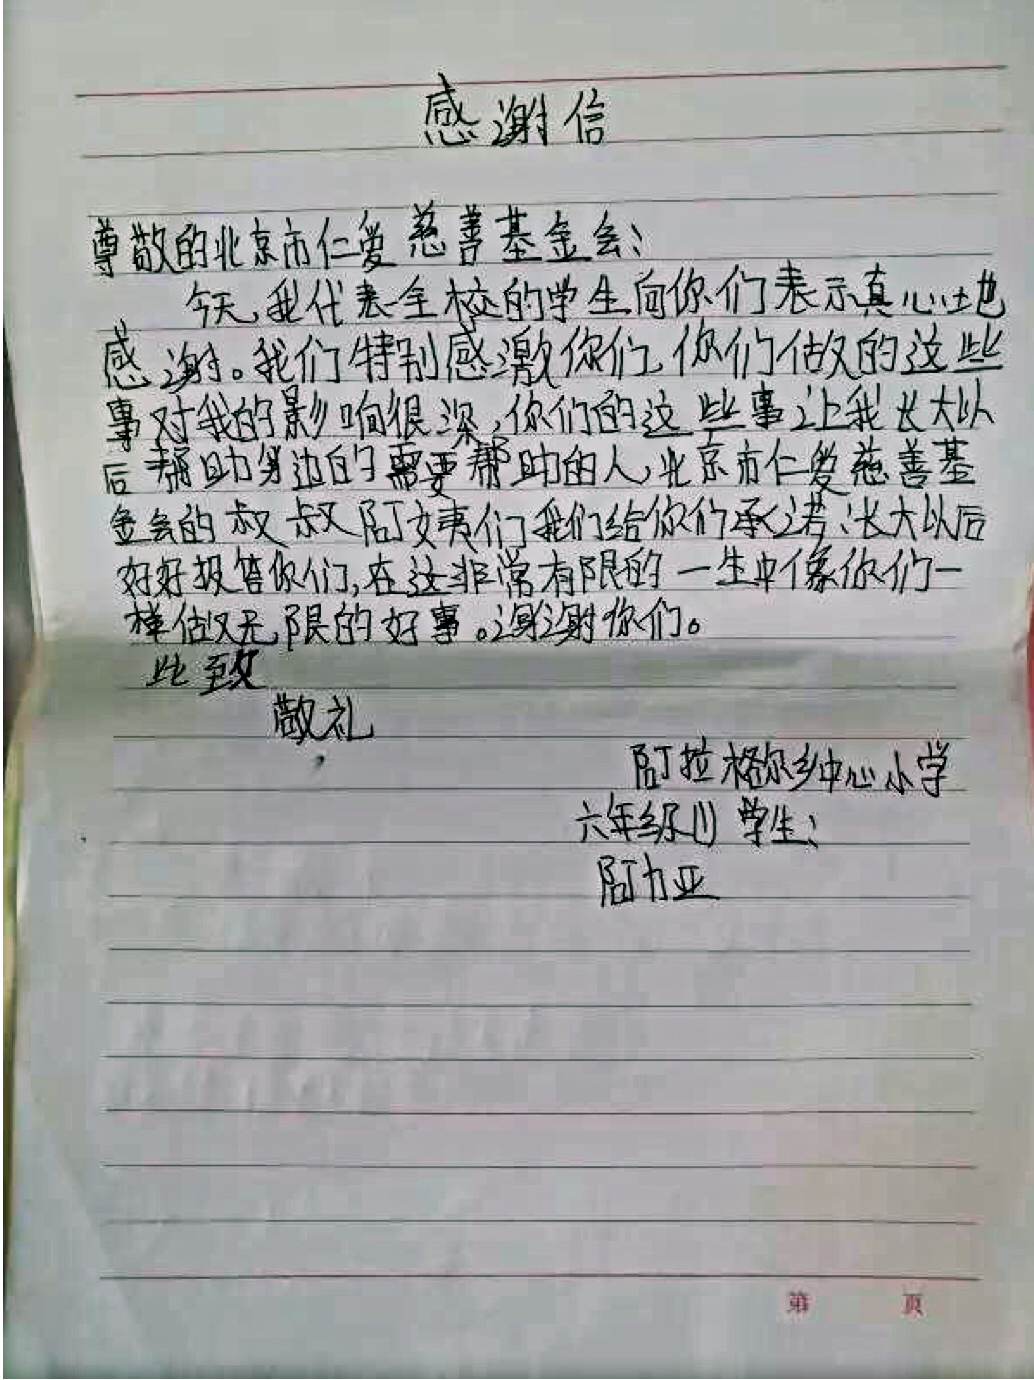 感谢信
尊敬的北京市仁爱慈善基金会:
今天,我代表全校的学生向你们表示真心地
感谢。我们特别感激你们,你们做的这些
事对我的影响很深,你们的这些事让我长大以
后帮助身边的需要帮助的人,北京市仁爱慈善基
金会的叔叔阿姨们我们给你们承诺:长大以后
好好报答你们,在这非常有限的一生中像你们一
样做无限的好事。谢谢你们。
此致
敬礼
阿拉格尔乡中心小学
六年级(1)学生:
阿力亚
第 页